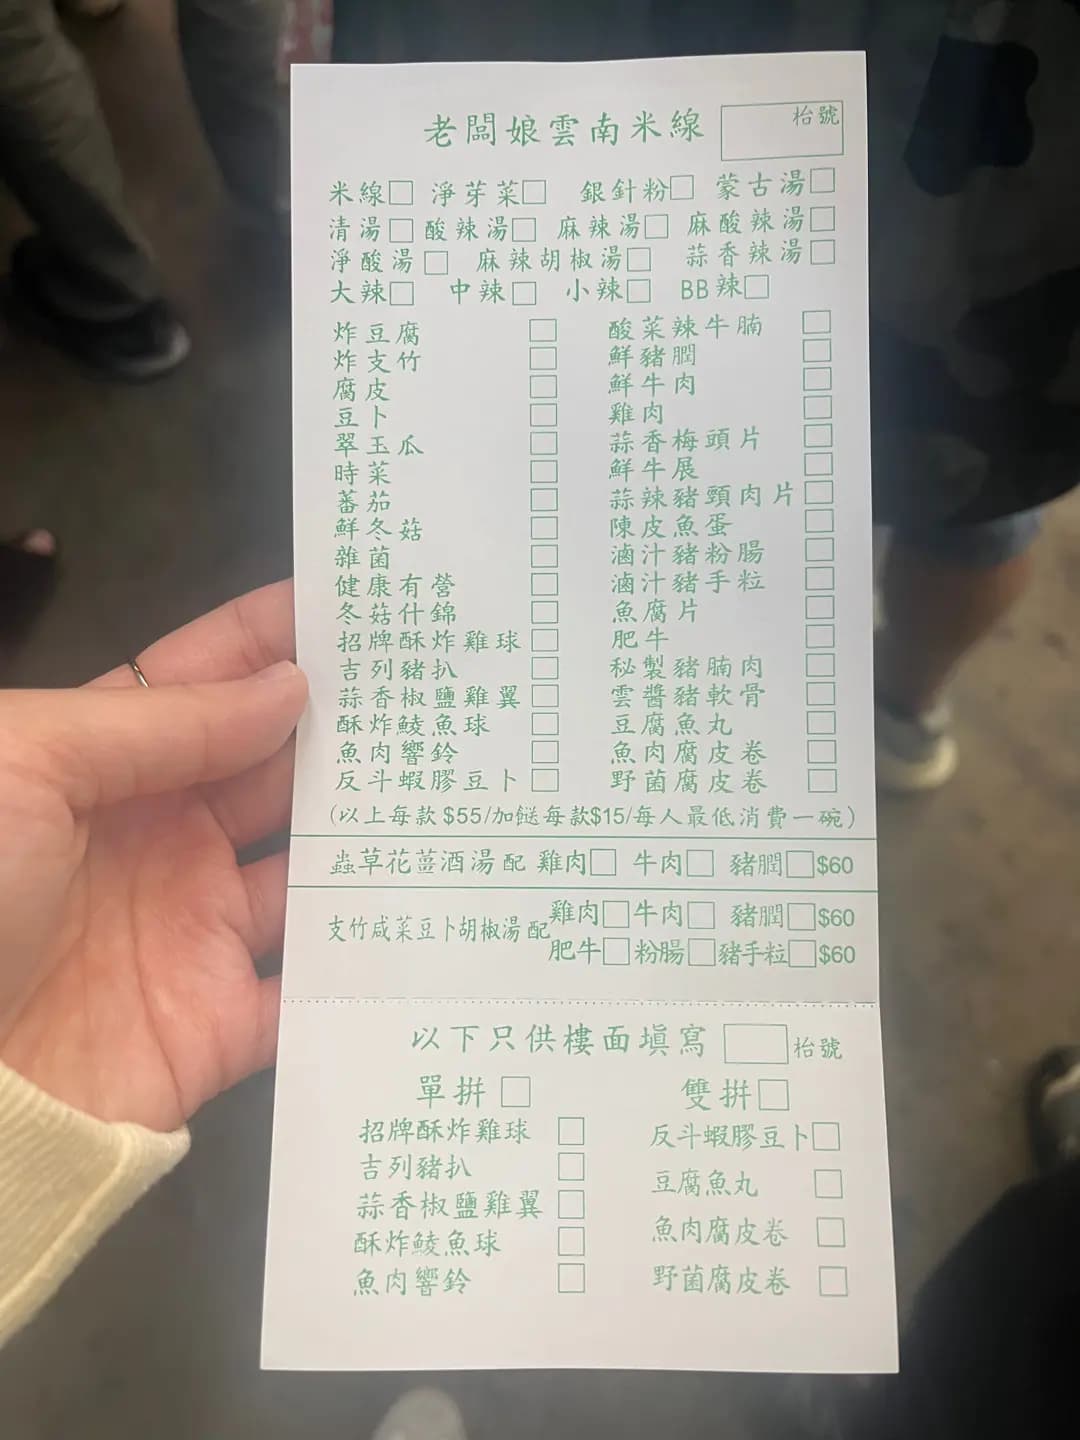 老闆娘雲南米線 枱號
米線 淨芽菜 銀針粉 蒙古湯
清湯 酸辣湯 麻辣湯 麻酸辣湯
淨酸湯 麻辣胡椒湯 蒜香辣湯
大辣 中辣 小辣 BB辣
炸豆腐 酸菜辣牛腩
炸支竹 鮮豬膶
腐皮 鮮牛肉
豆卜 雞肉
翠玉瓜 蒜香梅頭片
時菜 鮮牛展
蕃茄 蒜辣豬頸肉片
鮮冬菇 陳皮魚蛋
雜菌 滷汁豬粉腸
健康有營 滷汁豬手粒
冬菇什錦 魚腐片
招牌酥炸雞球 肥牛
吉列豬扒 秘製豬腩肉
蒜香椒鹽雞翼 雲醬豬軟骨
酥炸鯪魚球 豆腐魚丸
魚肉響鈴 魚肉腐皮卷
反斗蝦膠豆卜 野菌腐皮卷
(以上每款$55/加餸每款$15/每人最低消費一碗)
蟲草花薑酒湯配 雞肉 牛肉 豬膶 $60
支竹咸菜豆卜胡椒湯配 雞肉 牛肉 豬膶 $60
肥牛 粉腸 豬手粒 $60
以下只供樓面填寫 枱號
單拼 雙拼
招牌酥炸雞球 反斗蝦膠豆卜
吉列豬扒 豆腐魚丸
蒜香椒鹽雞翼 魚肉腐皮卷
酥炸鯪魚球 野菌腐皮卷
魚肉響鈴